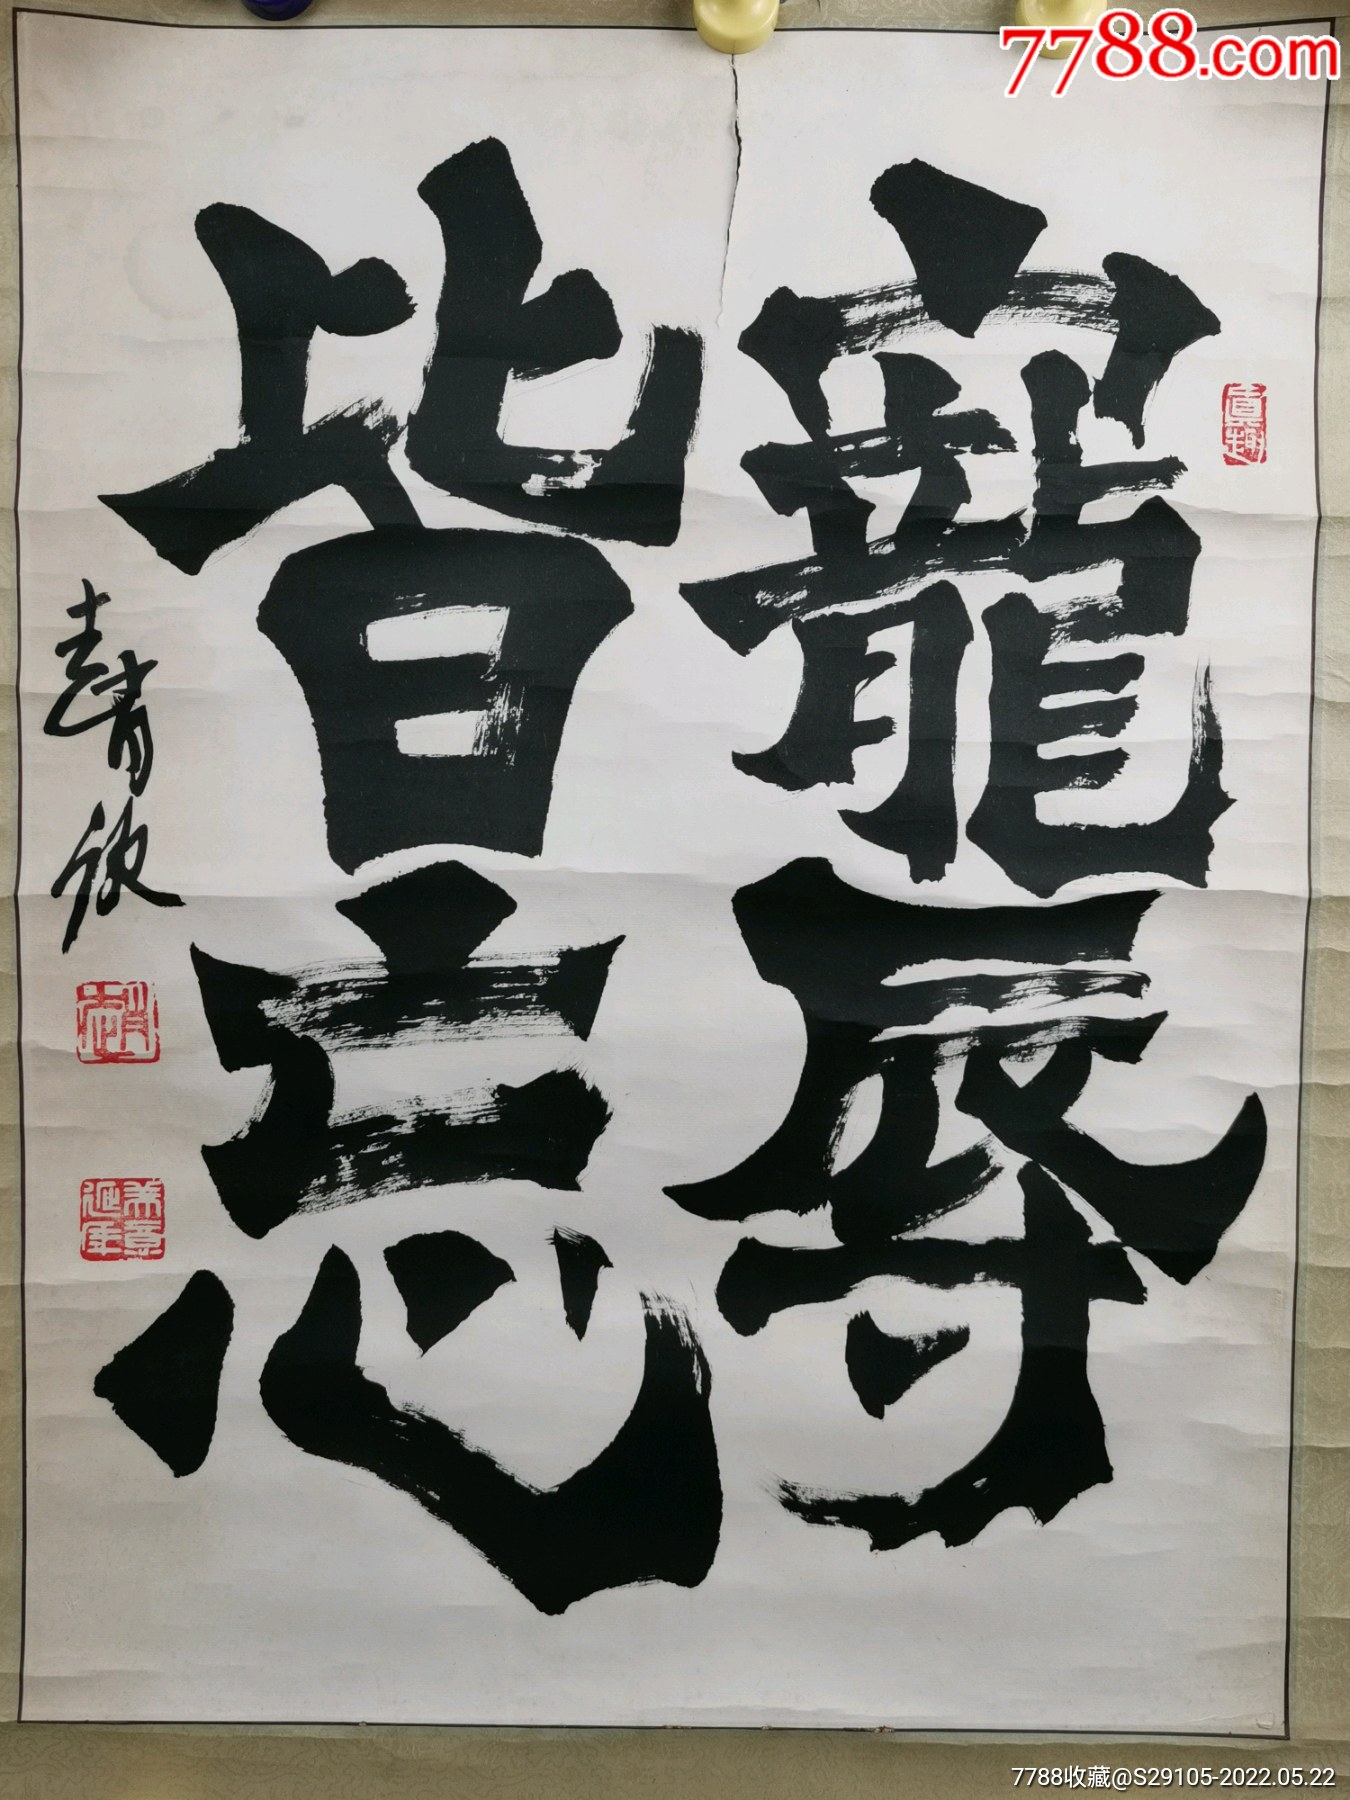 7788.com
寵辱
皆忘
真趣
益壽
延年
7788收藏@S29105-2022.05.22